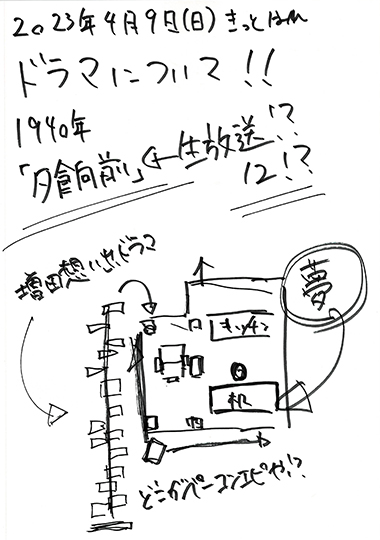 2023年4月9日(日) きっとはれ
ドラマについて!!
1940年
「夕餉前」←生放送!?
12!?
増田想い出ドラマ
夢
キッチン
机
どこがペーコンエピや!?